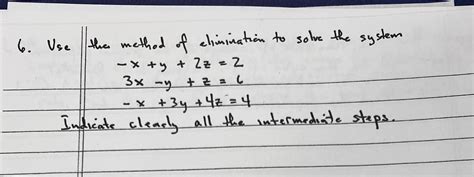 6. Use the method of elimination to solve the system
-x + y + 2z = 2
3x - y + z = 6
-x + 3y + 4z = 4
Indicate clearly all the intermediate steps.